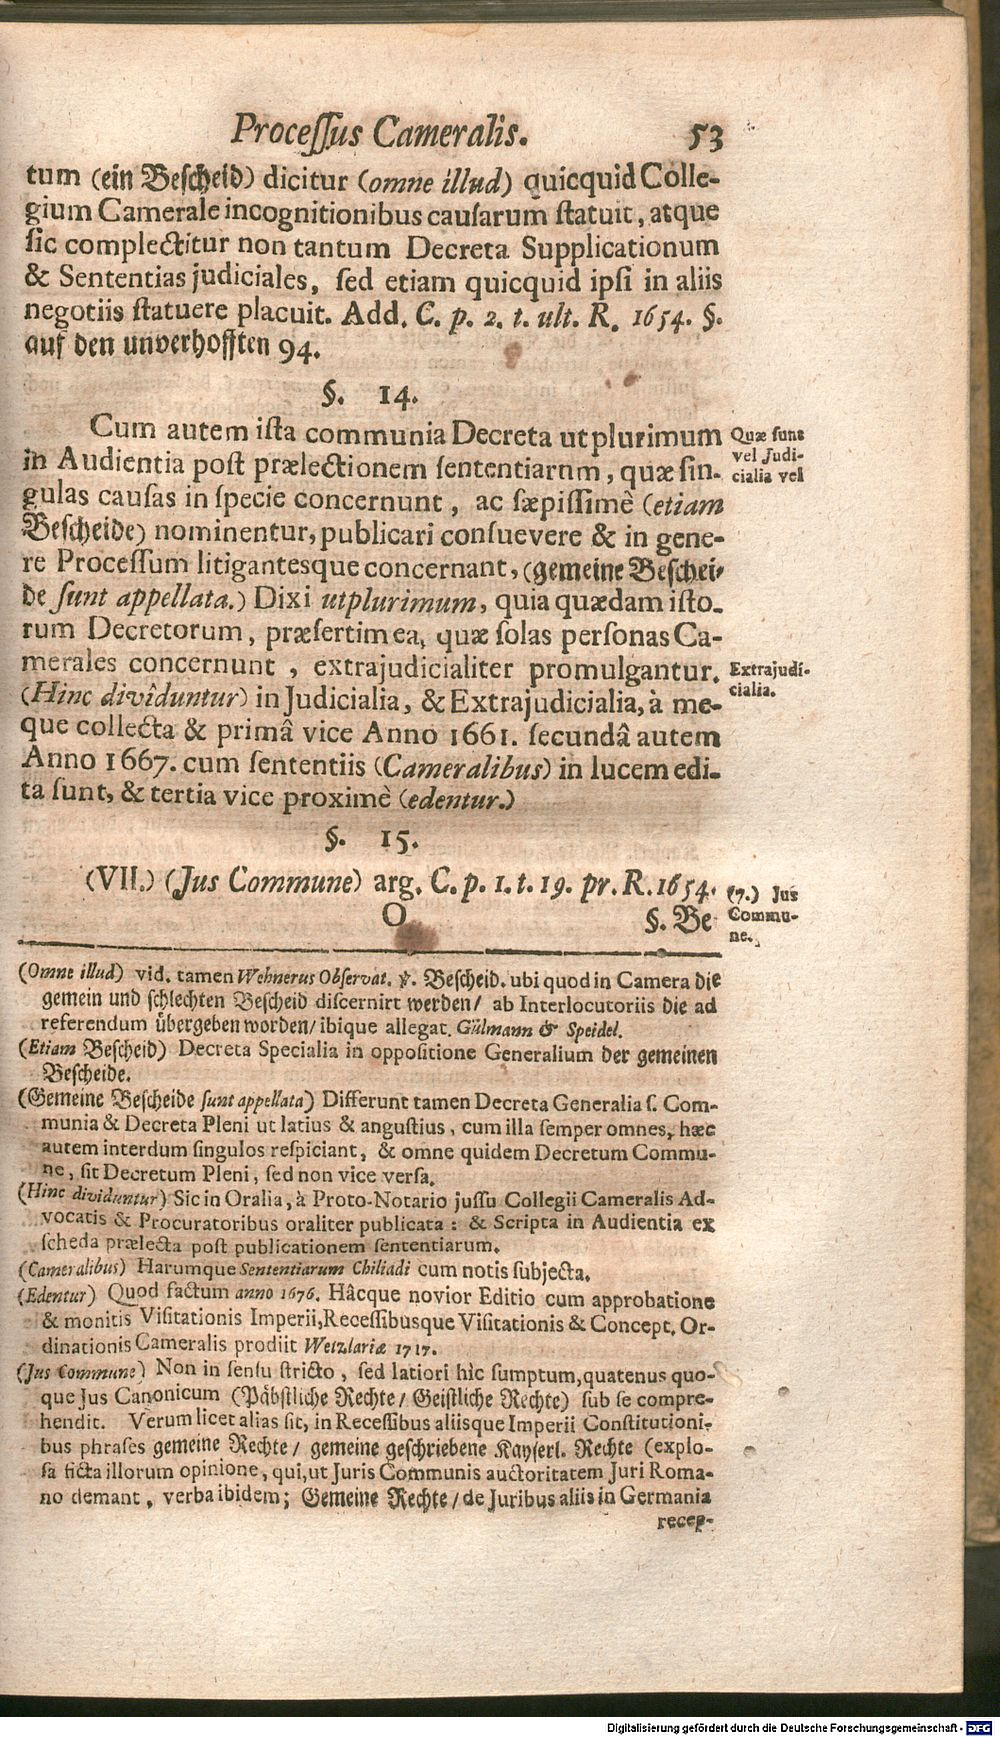 Processus Cameralis. 53
tum (ein Bescheid) dicitur (omne illud) quicquid Colle-
gium Camerale incognitionibus causarum statuit, atque
sic complectitur non tantum Decreta Supplicationum
& Sententias judiciales, sed etiam quicquid ipsi in aliis
negotiis statuere placuit. Add. C. p. 2. t. ult. R. 1654. §.
auf den unverhofften 94.
§. 14.
Cum autem ista communia Decreta utplurimum
in Audientia post prælectionem sententiarum, quæ sin-
gulas causas in specie concernunt, ac sæpissimè (etiam
Bescheide) nominentur, publicari consuevere & in gene-
re Processum litigantesque concernant, (gemeine Beschei-
de sunt appellata.) Dixi utplurimum, quia quædam isto-
rum Decretorum, præsertim ea, quæ solas personas Ca-
merales concernunt, extrajudicialiter promulgantur.
(Hinc dividuntur) in Judicialia, & Extrajudicialia, à me-
que collecta & primâ vice Anno 1661. secundâ autem
Anno 1667. cum sententiis (Cameralibus) in lucem edi-
ta sunt, & tertia vice proximè (edentur.)
Quæ sunt
vel Judi-
cialia vel
Extrajudi-
cialia.
§. 15.
(VII.) (Jus Commune) arg. C. p. 1. t. 19. pr. R. 1654.
O §. Be
(7.) Jus
Commu-
ne.
(Omne illud) vid. tamen Wehnerus Observat. v. Bescheid. ubi quod in Camera die
gemein und schlechten Bescheid discernirt werden/ ab Interlocutoriis die ad
referendum übergeben worden/ ibique allegat. Gülmann & Speidel.
(Etiam Bescheid) Decreta Specialia in oppositione Generalium der gemeinen
Bescheide.
(Gemeine Bescheide sunt appellata) Differunt tamen Decreta Generalia s. Com-
munia & Decreta Pleni ut latius & angustius, cum illa semper omnes, hæc
autem interdum singulos respiciant, & omne quidem Decretum Commu-
ne, sit Decretum Pleni, sed non vice versa.
(Hinc dividuntur) Sic in Oralia, à Proto-Notario jussu Collegii Cameralis Ad-
vocatis & Procuratoribus oraliter publicata: & Scripta in Audientia ex
scheda prælecta post publicationem sententiarum.
(Cameralibus) Harumque Sententiarum Chiliadi cum notis subjecta.
(Edentur) Quod factum anno 1676. Hâcque novior Editio cum approbatione
& monitis Visitationis Imperii, Recessibusque Visitationis & Concept. Or-
dinationis Cameralis prodiit Wetzlariæ 1717.
(Jus Commune) Non in sensu stricto, sed latiori hîc sumptum, quatenus quo-
que Jus Canonicum (Päbstliche Rechte/ Geistliche Rechte) sub se compre-
hendit. Verum licet alias sit, in Recessibus aliisque Imperii Constitutioni-
bus phrases gemeine Rechte/ gemeine geschriebene Kayserl. Rechte (explo-
sa ficta illorum opinione, qui, ut Juris Communis auctoritatem Juri Roma-
no demant, verba ibidem; Gemeine Rechte/ de Juribus aliis in Germania
recep-
Digitalisierung gefördert durch die Deutsche Forschungsgemeinschaft - DFG